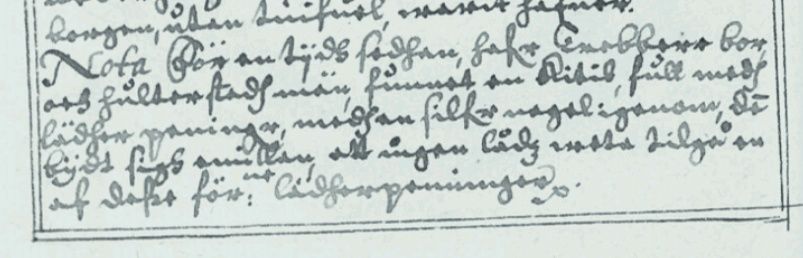 borgen, uthan tuifuel, warit hafuer.
Nota För en tijdh sedhan, hafr Trebberr bor
och hulterstadh män, funnet en Kitil, full medh
lädher peningr, medh en silfr nagel igenom, dē
bijdt sigh emillan, att ingen lädz weta tilgå en
af deße för:ne lädherpeninger.